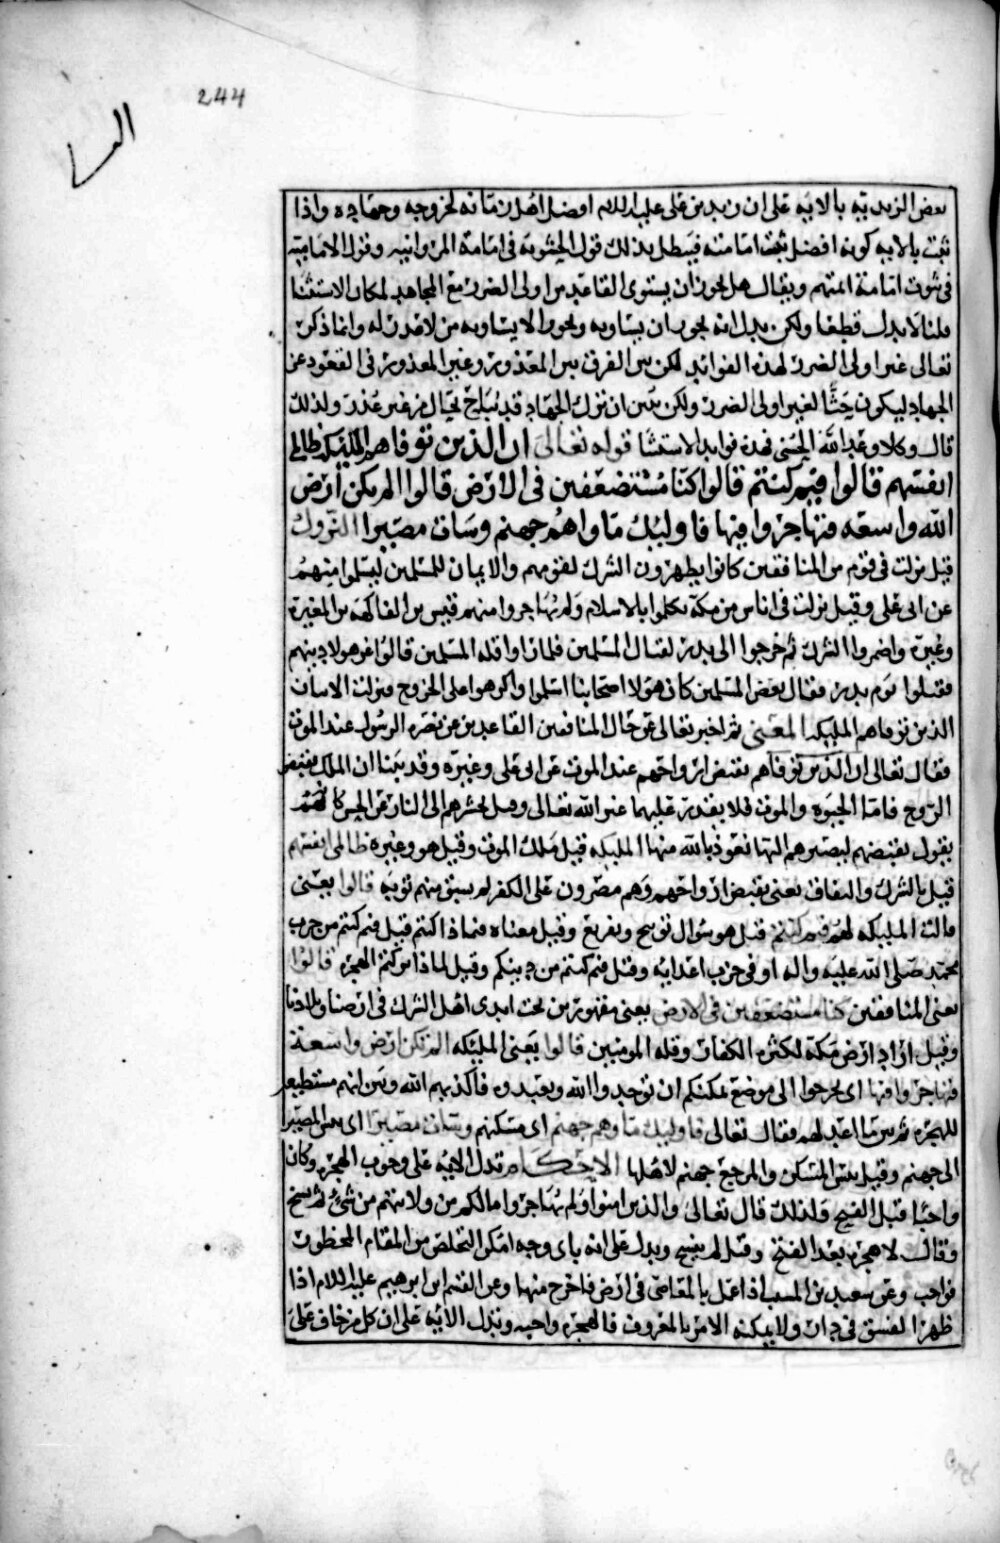 244
بعض الزيديه بالايه على ان زيد بن على عليه السلام افضل اهل زمانه لخروجه وجهاده واذا
ثبت بالايه كونه افضل ثبت امامته فيبطل بذلك قول الحشويه فى امامة المروانيه وقول الاماميه
فى ثبوت امامة ائمتهم ويقال هل يجوز ان يستوى القاعد من اولى الضرر مع المجاهد لمكان الاستثنا
قلنا لا يدل قطعا ولكن يدل انه يجوز ان يساويه ويجوز الا يساويه من لا عذر له وانما ذكر
تعالى غير اولى الضرر لهذه الفوائد لكن بين الفرق بين المعذور وغير المعذور فى القعود عن
الجهاد ليكون حثًّا لغير اولى الضرر ولكن بين ان ترك الجهاد قد يباح بحال من غير عذر ولذلك
قال وكلا وعد الله الحسنى فهذه فوايد الاستثنا قوله تعالى ان الذين توفاهم المليكه ظالمى
انفسهم قالوا فيم كنتم قالوا كنا مستضعفين فى الارض قالوا الم تكن ارض
الله واسعه فتهاجروا فيها فاوليك ماواهم جهنم وسات مصيرا النزول
قيل نزلت فى قوم من المنافقين كانوا يظهرون الشرك لقومهم والايمان للمسلمين ليسلموا منهم
عن ابى على وقيل نزلت فى اناس من مكة تكلموا بالاسلام ولم يهاجروا منهم قيس بن الفاكهه بن المغيرة
وغيره واضمروا الشرك ثم خرجوا الى بدر لقتال المسلمين فلما راوا قلة المسلمين قالوا غر هولا دينهم
فقتلوا يوم بدر فقال بعض المسلمين كان هولا اصحابنا اسلموا واكرهوا على الخروج فنزلت الايه ان
الذين توفاهم المليكه المعنى ثم اخبر تعالى عن حال المنافقين القاعدين عن نصره الرسول عند الموت
فقال تعالى ان الذين توفاهم بقبض ارواحهم عند الموت عن ابى على وغيره وقد بينا ان الملك يقبض
الروح فاما الحيوه والموت فلا يقدر عليهما غير الله تعالى وقيل يحشرهم الى النار عن الحسن كانهم
يقول يقبضهم ليصيرهم اليها نعوذ بالله منها المليكه قيل ملك الموت وقيل هو وغيره ظالمى انفسهم
قيل بالشرك والنفاق يعنى يقبض ارواحهم وهم مصرون على الكفر لم يسبق منهم توبه قالوا يعنى
قالت المليكه لهم فيم كنتم قيل هو سوال توبيخ وتقريع وقيل معناه فيماذا كنتم قيل فيم كنتم من حرب
محمد صلى الله عليه واله او فى حرب اعدايه وقيل فيم كنتم من دينكم وقيل لماذا تركتم الهجره قالوا
يعنى المنافقين كنا مستضعفين فى الارض يعنى مقهورين من تحت ايدى اهل الشرك فى ارضنا وبلادنا
وقيل اراد ارض مكة لكثره الكفار وقله المومنين قالوا يعنى المليكه الم تكن ارض واسعة
فتهاجروا فيها اى يخرجوا الى موضع يمكنكم ان توحدوا الله وتعبدوه فاكذبهم الله وبين انهم مستطيعو
للهجره ثم بين ما اعد لهم فقال تعالى فاوليك ماوهم جهنم اى مسكنهم وسات مصيرا اى بئس المصير
الى جهنم وقيل بئس المسكن والمرجع جهنم لاهلها الاحكام تدل الايه على وجوب الهجره وكان
واجبا قبل الفتح ولذلك قال تعالى والذين امنوا ولم يهاجروا ما لكم من ولايتهم من شئ ثم نسخ
وقال لا هجره بعد الفتح وقيل لم ينسخ ويدل على انه باى وجه امكن التخلص من المقام المحظور
فواجب وعن سعيد بن المسيب اذا عمل بالمعاصى فى ارض فاخرج منها وعن القسم بن ابرهيم عليه السلام اذا
ظهر الفسق فى دار ولا يمكنه الامر بالمعروف فالهجره واجبه وتدل الايه على ان كل من خاف على